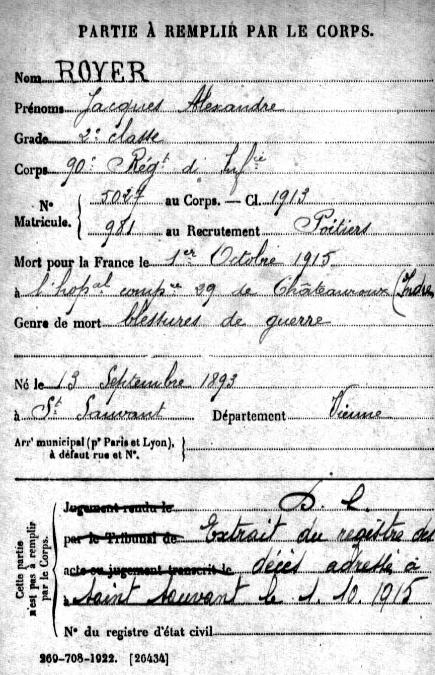 PARTIE À REMPLIR PAR LE CORPS.
Nom ROYER
Prénoms Jacques Alexandre
Grade 2e classe
Corps 90e Régt d'Infie
N° Matricule. { 5027 au Corps. — Cl. 1913
981 au Recrutement Poitiers
Mort pour la France le 1er Octobre 1915
à l'hopal compre 29 de Châteauroux (Indre)
Genre de mort blessures de guerre
Né le 13 Septembre 1893
à St Sauvant Département Vienne
Arrt municipal (pr Paris et Lyon),
à défaut rue et N°.
Cette partie n'est pas à remplir par le Corps.
Jugement rendu le D. C.
par le Tribunal de Extrait du registre des
acte ou jugement transcrit le décès adressé à
à Saint Sauvant le 1.10.1915
N° du registre d'état civil
269-708-1922. [26434]